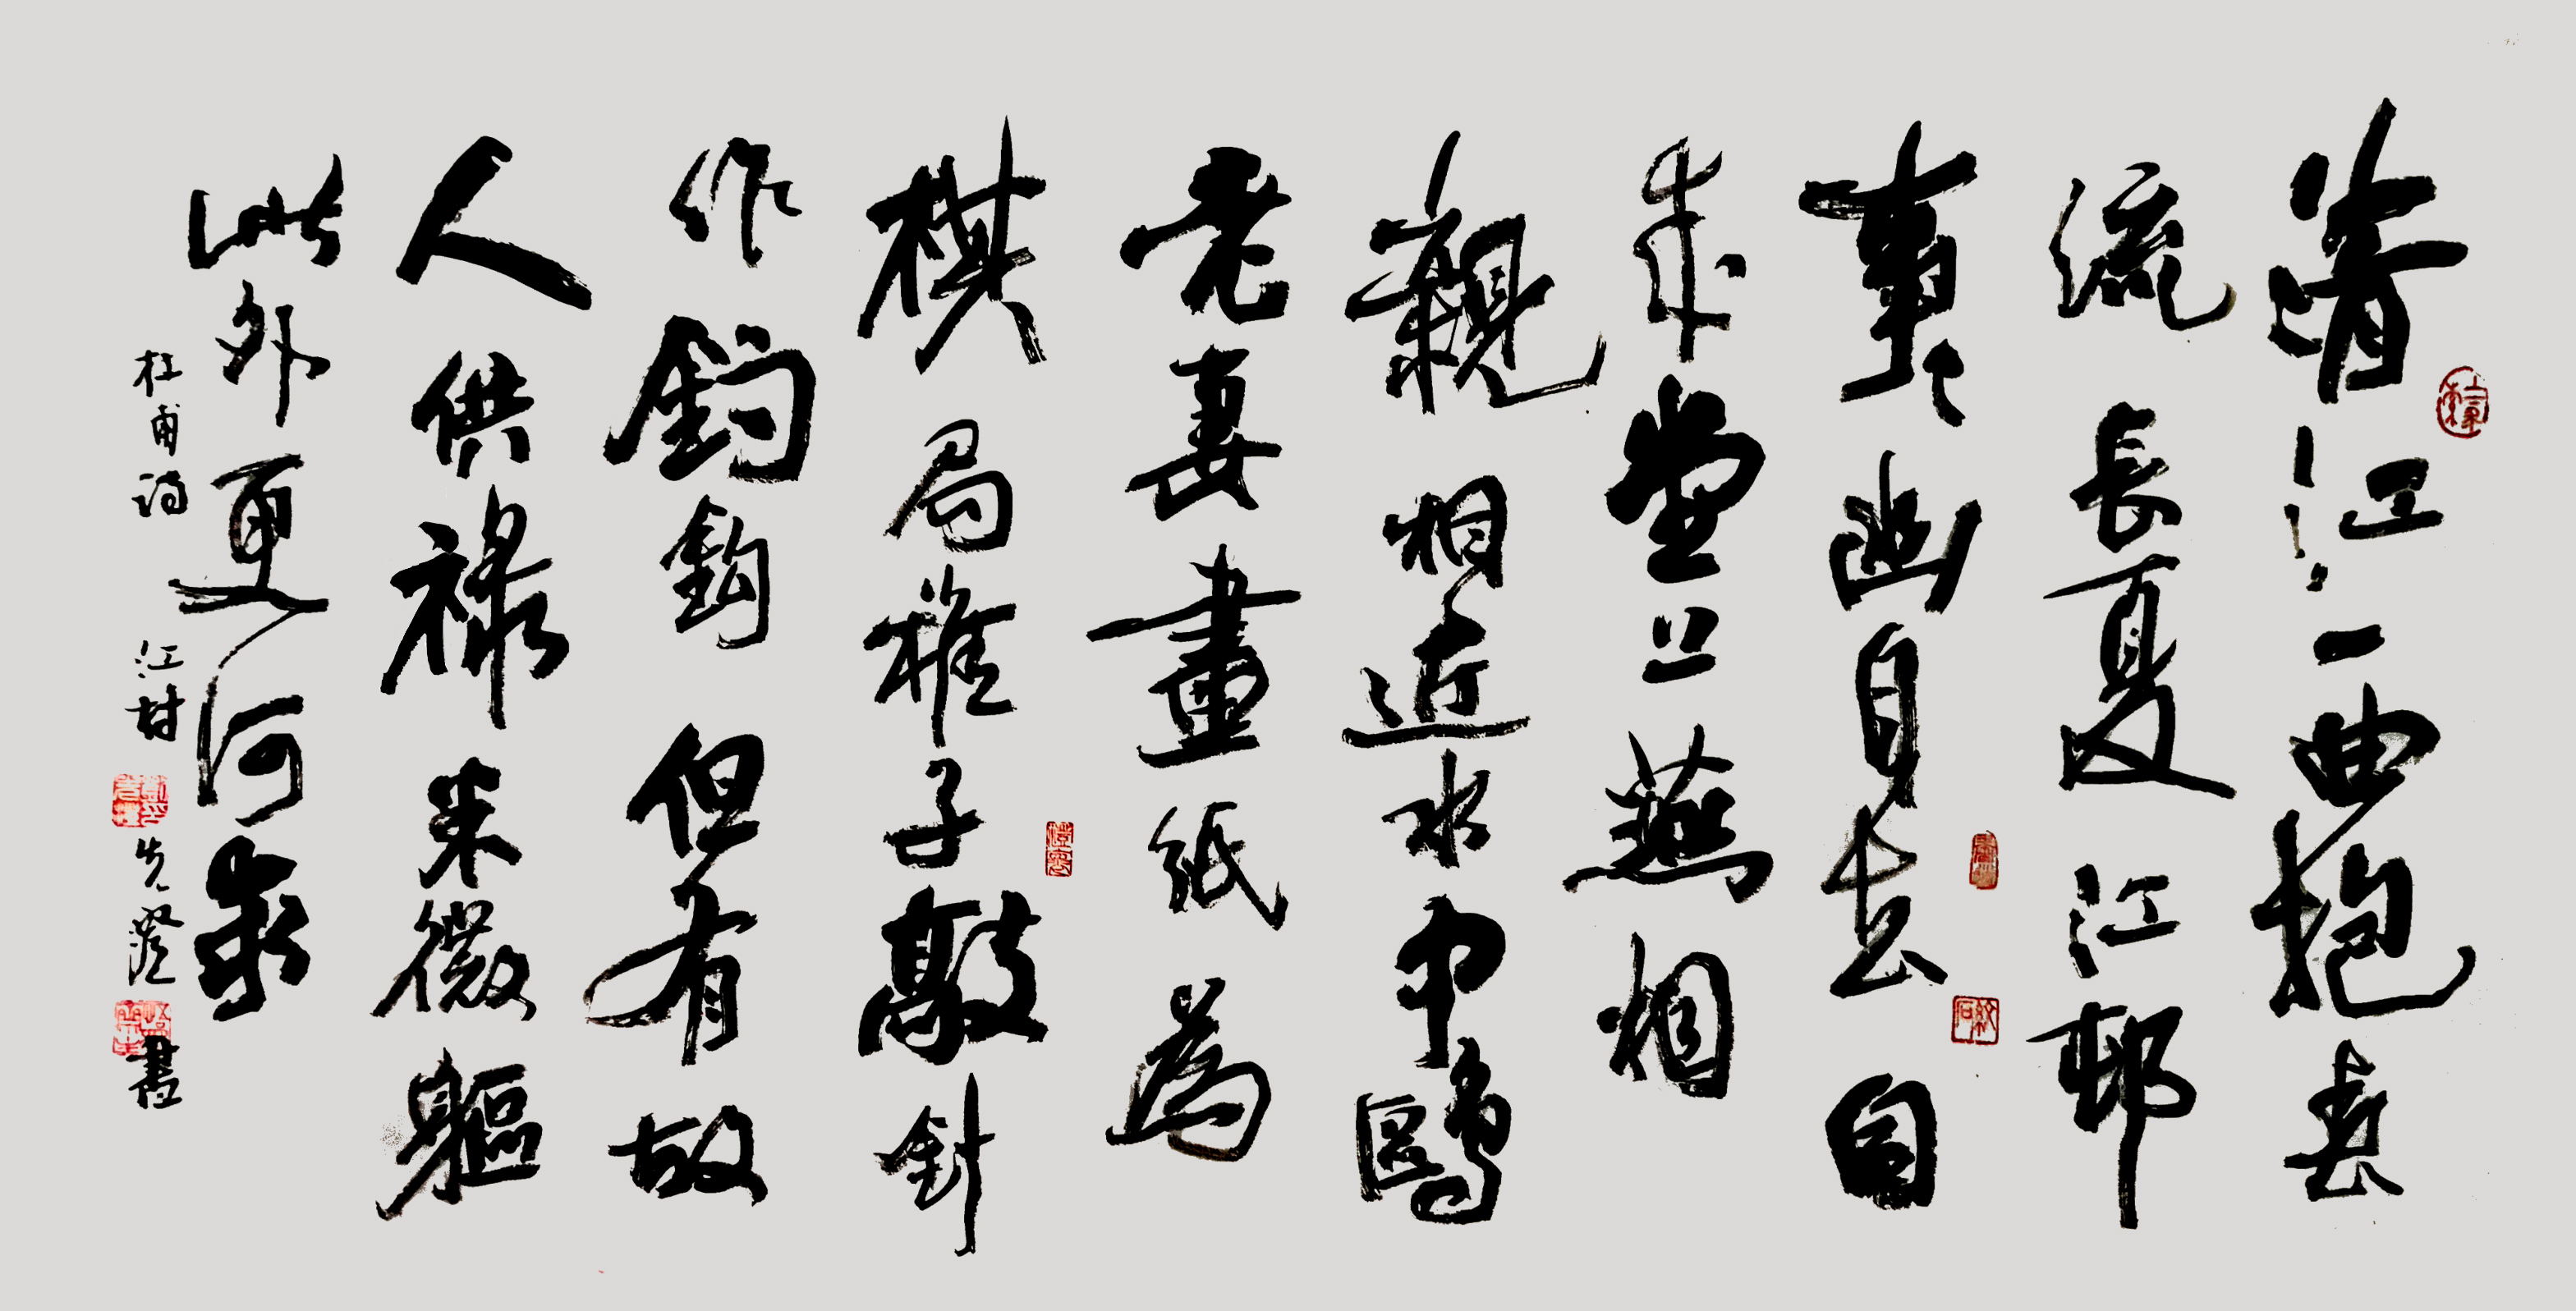 清江一曲抱
流長夏江邨
事々幽自去自
來堂上燕相
親相近水中鷗
老妻畫紙為
棋局稚子敲針
作釣鈎但有故
人供禄米微軀
此外更何求
杜甫詩 江村 先澄書